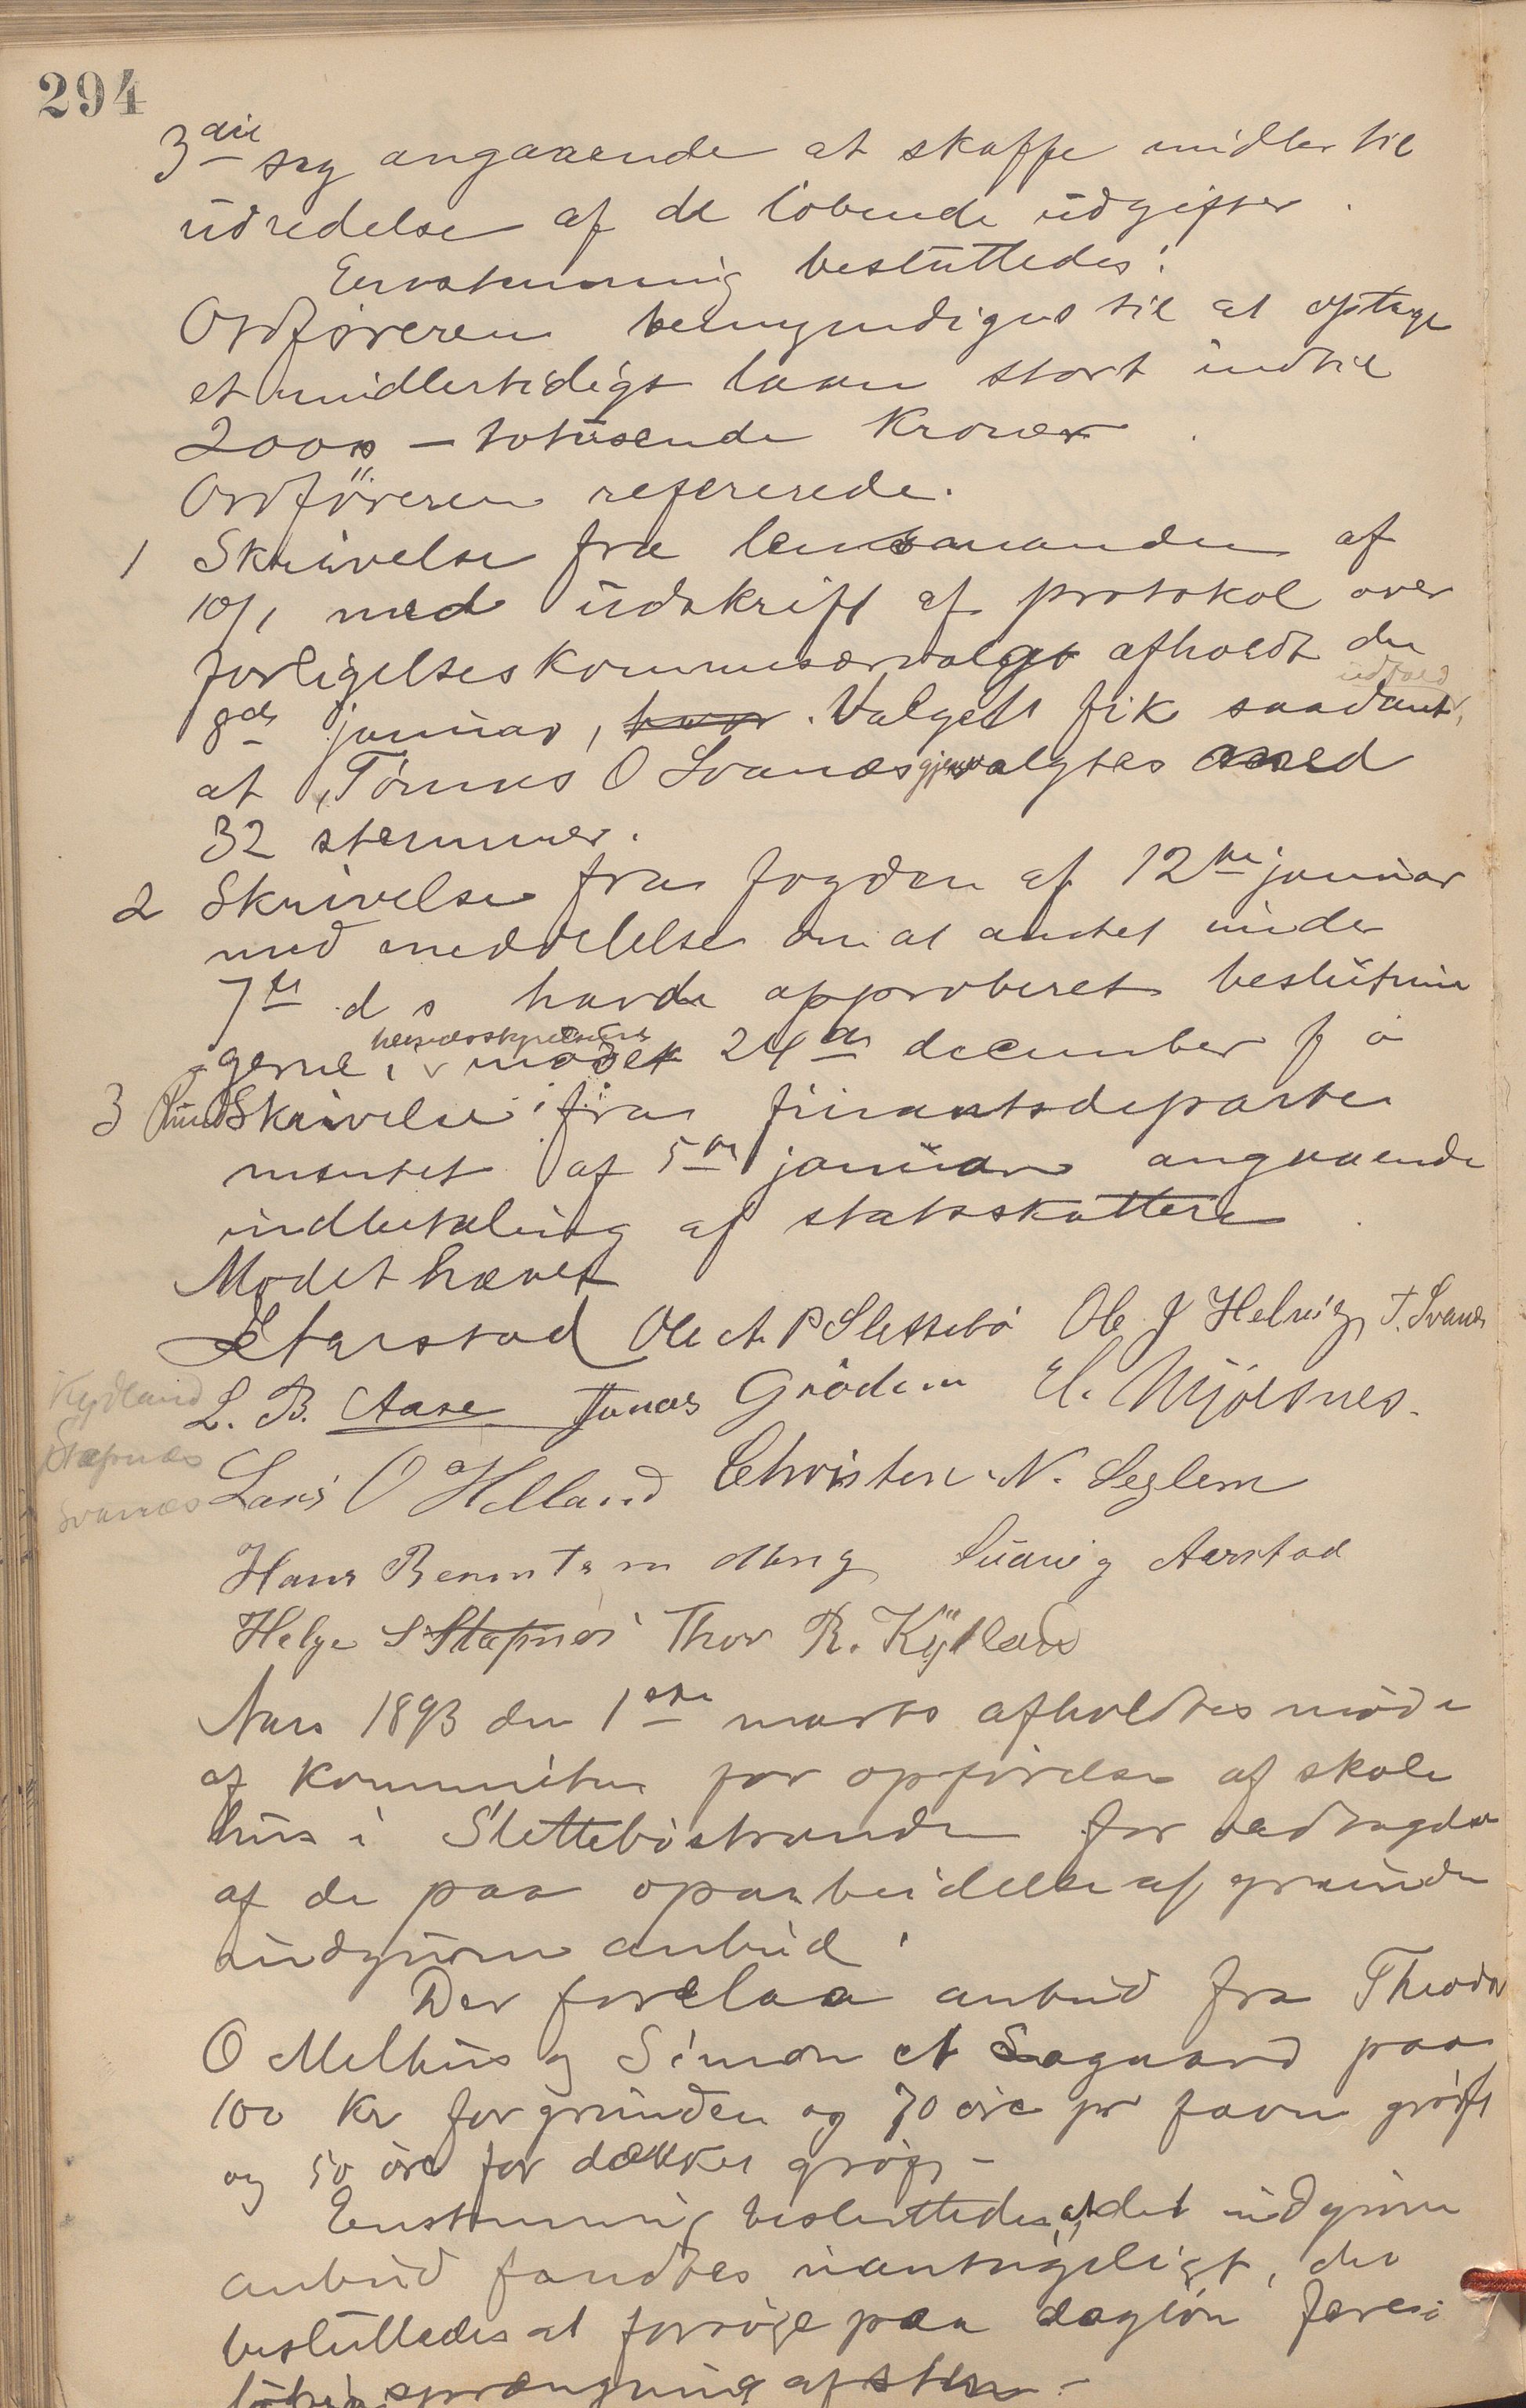 294
3die sag angaaende at skaffe midler til
udredelse af de løbende udgifter.
Eenstemmig besluttedes:
Ordføreren bemyndiges til at optage
et midlertidigt laan stort indtil
2000 – totusende Kroner.
Ordføreren refererede.
1 Skrivelse fra lensmanden af
10/1 med udskrift af protokol over
forligelseskommisærvalget afholdt den
8de januar, hvor. Valget fik saadant udfald,
at Tørnes O Svanæs gjenvalgtes med
32 stemmer.
2 Skrivelse fra fogden af 12te januar
med meddelelse om at amtet under
7de d s havde approberet beslutnin
gerne i herredsstyrelsens mødet 24de december f a
3 Rund Skrivelse fra finantsdeparte
mentet af 5te januar angaaende
indbetaling af statsskatten.
Mødet hævet
Aarstad Ole A. P Slettebø Ole J Helvig T. Svanes
Kydland
L. B. Aase Jonas Grødem E. Mjølsnes.
Stapnæs
Svanæs
Lars O Helland Christen N. Seglem
Hans Berentsen Ludvig Aarstad
Helge S Stapnes Thor R. Kydland
Aar 1893 den 1ste marts afholdtes møde
af kommiteen for opførelse af skole
hus i Slettebøstranden for
af de paa oparbeidelse af grunde
indgivne anbud.
Der forelaa anbud fra Theodor
O Melhus og Simon A Sagaard paa
100 Kr for grunden og 70 øre pr favn grøft
og 50 øre for dækket grøft –
Enstemmig besluttedes, at det indgivne
anbud fandtes uantageligt, der
besluttedes at forsøge paa dagløn fores
løbig sprængning af sten –